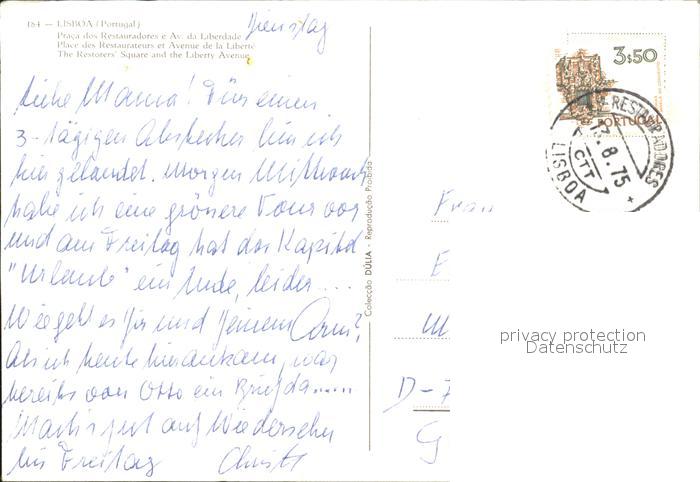 184 — LISBOA (Portugal)
Praça dos Restauradores e Av. da Liberdade
Place des Restaurateurs et Avenue de la Liberté
The Restorers' Square and the Liberty Avenue
Dienstag
Liebe Mama! Für einen
3-tägigen Abstecher bin ich
hier gelandet. Morgen Mittwoch
habe ich eine grössere Tour vor
und am Freitag hat das Kapitel
"Urlaub" ein Ende, leider ...
Wie geht es Dir und Deinem Arm?
Als ich heute hier ankam, war
bereits von Otto ein Brief da.....
Machs gut auf Wiedersehen
bis Freitag
Colecção DÚLIA - Reprodução Proibida
3$50
PORTUGAL
RESTAURADORES
13.8.75
CTT
LISBOA
Frau
E
M
D-7
G
privacy protection
Datenschutz